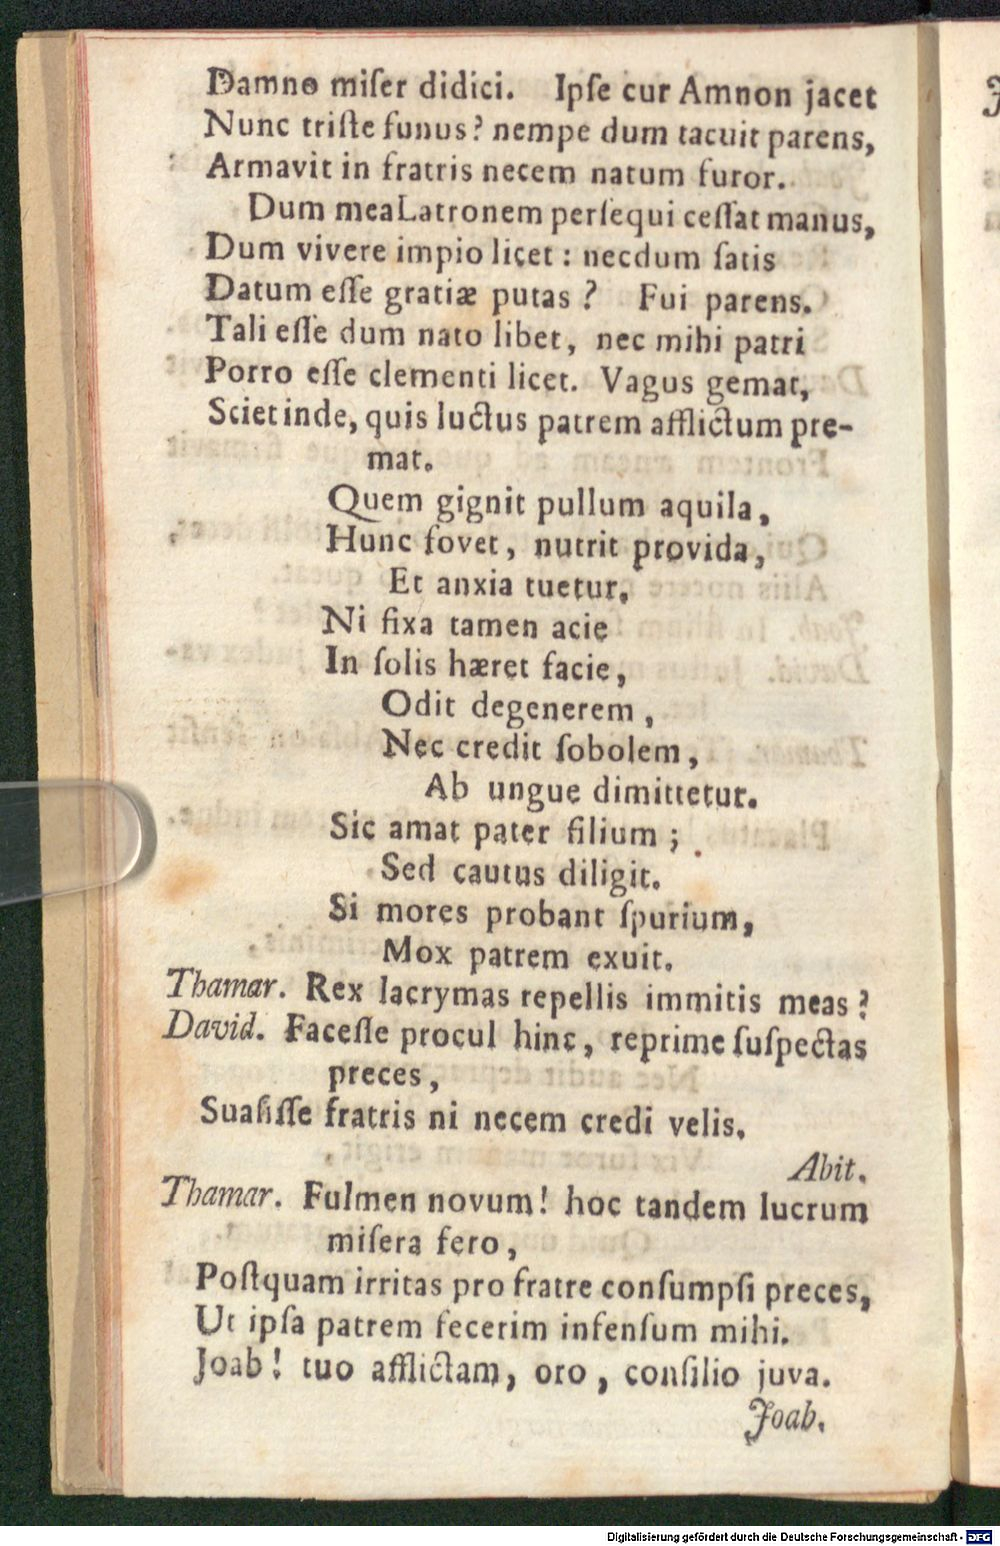 Damno miſer didici. Ipſe cur Amnon jacet
Nunc triſte funus? nempe dum tacuit parens,
Armavit in fratris necem natum furor.
Dum mea Latronem perſequi ceſſat manus,
Dum vivere impio licet: necdum ſatis
Datum eſſe gratiæ putas? Fui parens.
Tali eſſe dum nato libet, nec mihi patri
Porro eſſe clementi licet. Vagus gemat,
Sciet inde, quis luctus patrem afflictum pre-
mat.
Quem gignit pullum aquila,
Hunc fovet, nutrit provida,
Et anxia tuetur,
Ni fixa tamen acie
In ſolis hæret facie,
Odit degenerem,
Nec credit ſobolem,
Ab ungue dimittetur.
Sic amat pater filium;
Sed cautus diligit.
Si mores probant ſpurium,
Mox patrem exuit.
Thamar. Rex lacrymas repellis immitis meas?
David. Faceſſe procul hinc, reprime ſuſpectas
preces,
Suaſiſſe fratris ni necem credi velis.
Abit.
Thamar. Fulmen novum! hoc tandem lucrum
miſera fero,
Poſtquam irritas pro fratre conſumpſi preces,
Ut ipſa patrem fecerim infenſum mihi.
Joab! tuo afflictam, oro, conſilio juva.
Joab.
Digitalisierung gefördert durch die Deutsche Forschungsgemeinschaft - DFG